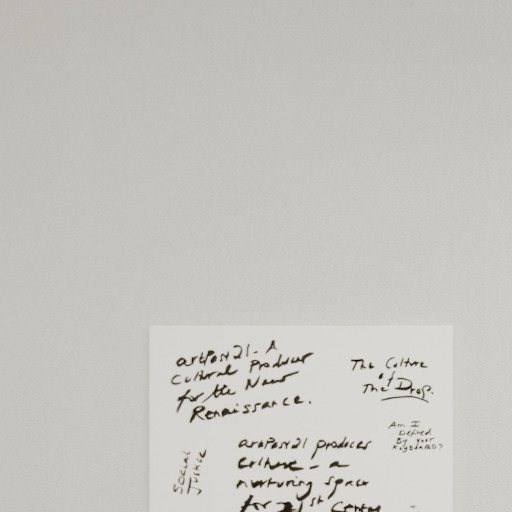 artPost21 - A
Cultural Producer
for the New
Renaissance.
The Culture
of
The Drop.
Am I
Defined
By your
Social
Justice
artPost21 produces
culture - a
nurturing space
for 21st